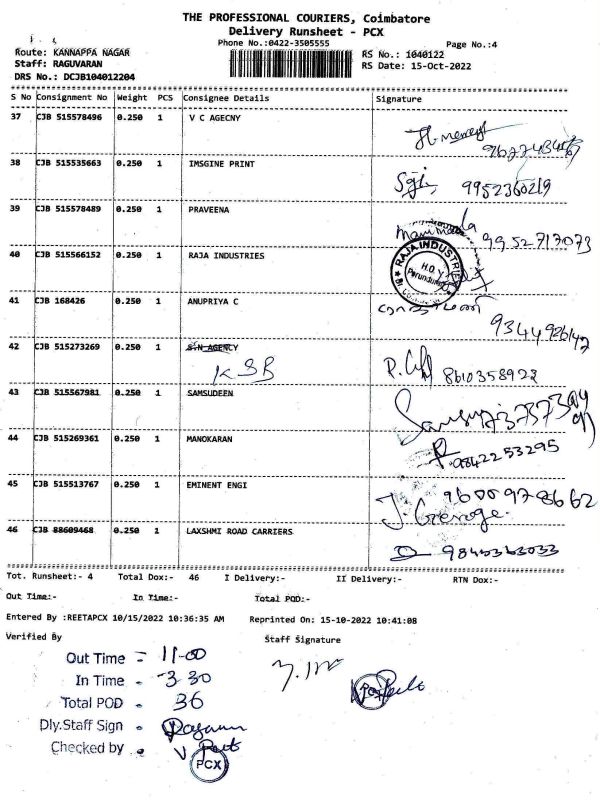 THE PROFESSIONAL COURIERS, Coimbatore
Delivery Runsheet - PCX
Phone No.:0422-3505555
Page No.:4
Route: KANNAPPA NAGAR
RS No.: 1040122
Staff: RAGUVARAN
RS Date: 15-Oct-2022
DRS No.: DCJB104012204
S No Consignment No Weight PCS Consignee Details Signature
37 CJB 515578496 0.250 1 V C AGECNY
38 CJB 515535663 0.250 1 IMSGINE PRINT
9952360219
39 CJB 515578489 0.250 1 PRAVEENA
9952717073
RAJA INDUSTRIES
H.O.
40 CJB 515566152 0.250 1 RAJA INDUSTRIES
41 CJB 168426 0.250 1 ANUPRIYA C
9344926142
42 CJB 515273269 0.250 1 S.N AGENCY
KSB
8610358928
43 CJB 515567981 0.250 1 SAMSUDEEN
44 CJB 515269361 0.250 1 MANOKARAN
9842253295
45 CJB 515513767 0.250 1 EMINENT ENGI
9600978662
J. Gereoge.
46 CJB 88609468 0.250 1 LAXSHMI ROAD CARRIERS
9840363033
Tot. Runsheet:- 4 Total Dox:- 46 I Delivery:- II Delivery:- RTN Dox:-
Out Time:- In Time:- Total POD:-
Entered By :REETAPCX 10/15/2022 10:36:35 AM Reprinted On: 15-10-2022 10:41:08
Verified By Staff Signature
Out Time - 11-00
In Time - 3 30
Total POD - 36
Dly.Staff Sign -
Checked by -
PCX